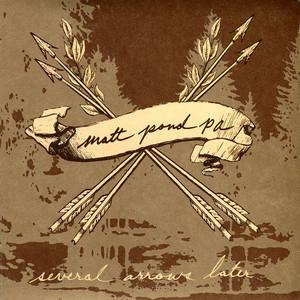 matt pond pa
several arrows later